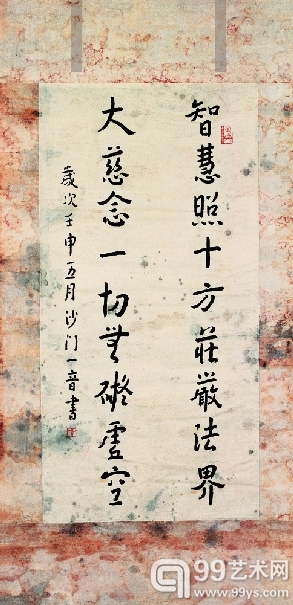 智慧照十方莊嚴法界
大慈念一切無礙虛空
歲次壬申五月沙門一音書
99艺术网
www.99ys.com